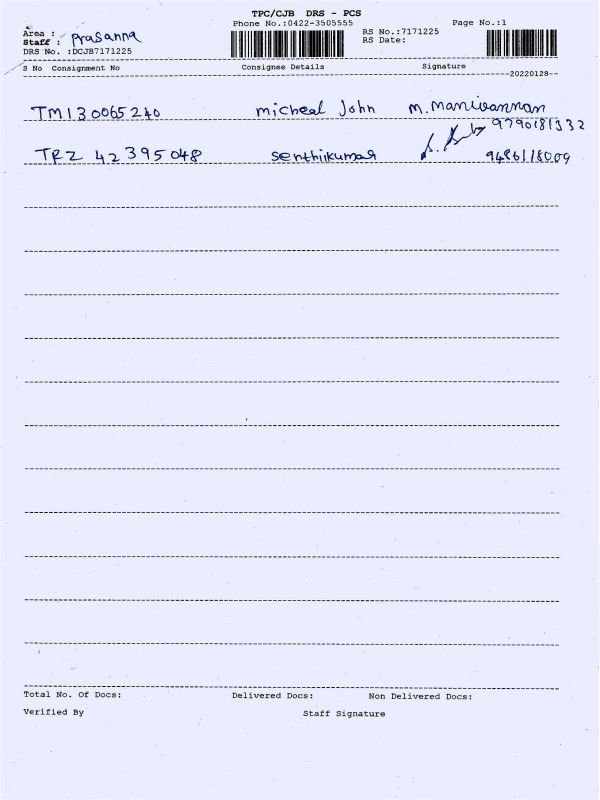 TPC/CJB DRS - PCS
Phone No.:0422-3505555 Page No.:1
Area :
Staff : Prasanna
RS No.:7171225
RS Date:
DRS No. :DCJB7171225
S No Consignment No Consignee Details Signature
20220128
TM130065240 micheal John M. Manivannan
9790181332
TRZ 42395048 senthilkumar 9486118009
Total No. Of Docs: Delivered Docs: Non Delivered Docs:
Verified By Staff Signature